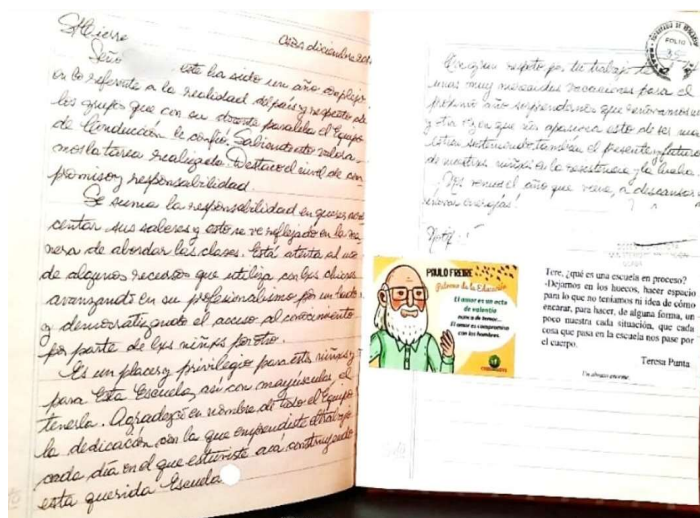 Cierre
Cdra diciembre
Seño
este ha sido un año complejo
en lo referente a la realidad del país y respecto de
los grupos que con su docente paralela el Equipo
de Conducción le confió. Sabiendo esto valora
mos la tarea realizada. Destaco el nivel de com
promiso y responsabilidad.
Se suma la responsabilidad en querer acre
centar sus saberes y esto se ve reflejado en la ma
nera de abordar las clases. Está atenta al uso
de algunos recursos que utiliza con los chicos
avanzando en su profesionalismo por un lado
y democratizando el acceso al conocimiento
por parte de los niños por otro.
Es un placer y privilegio para estos niños y
para esta Escuela, así con mayúsculas, el
tenerla. Agradezco en nombre de todo el Equipo
la dedicación con la que emprendiste el trabajo
cada día en el que estuviste acá construyendo
esta querida Escuela
FOLIO
35
Con gran respeto por tu trabajo te
unas muy merecidas vacaciones para el
próximo año sorprendernos que renovamos
y otra vez que nos apasiona esto de ser
sosteniendo también el presente y futuro
de nuestros niños en la resistencia y la lucha.
Nos vemos el año que viene, a descansar a
renovar energías!
Notif.:
PAULO FREIRE
de la Educación
El amor es un acto
de valentía
nunca de temor...
El amor es compromiso
con los hombres.
Tere, ¿qué es una escuela en proceso?
-Dejarnos en los huecos, hacer espacio
para lo que no teníamos ni idea de cómo
encarar, para hacer, de alguna forma, un
poco nuestra cada situación, que cada
cosa que pasa en la escuela nos pase por
el cuerpo.
Teresa Punta
Un abrazo enorme